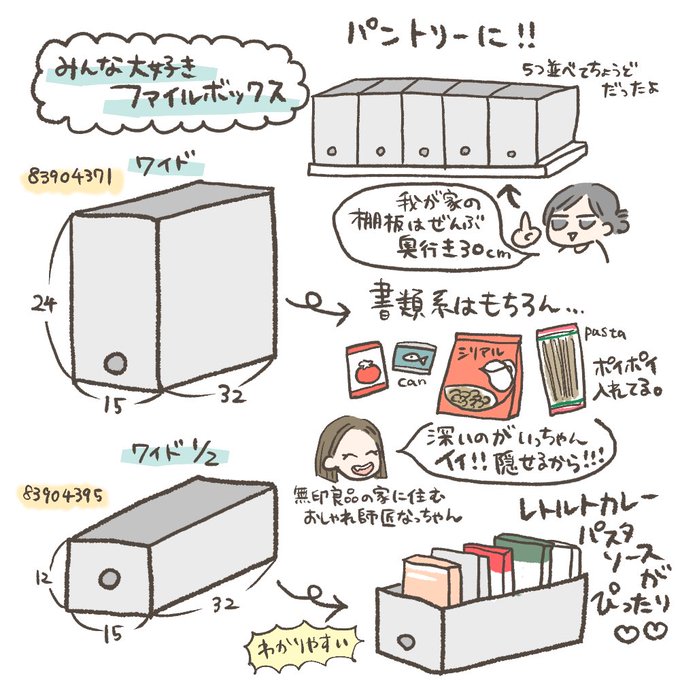 みんな大好き
ファイルボックス
パントリーに!!
5つ並べてちょうど
だったよ
83904371
ワイド
24
15
32
我が家の
棚板はぜんぶ
奥行き30cm
書類系はもちろん...
シリアル
can
pasta
ポイポイ
入れてる。
深いのがいっちゃん
イイ!!隠せるから!!!
無印良品の家に住む
おしゃれ師匠なっちゃん
ワイド1/2
83904395
12
15
32
わかりやすい
レトルトカレー
パスタ
ソース
が
ぴったり